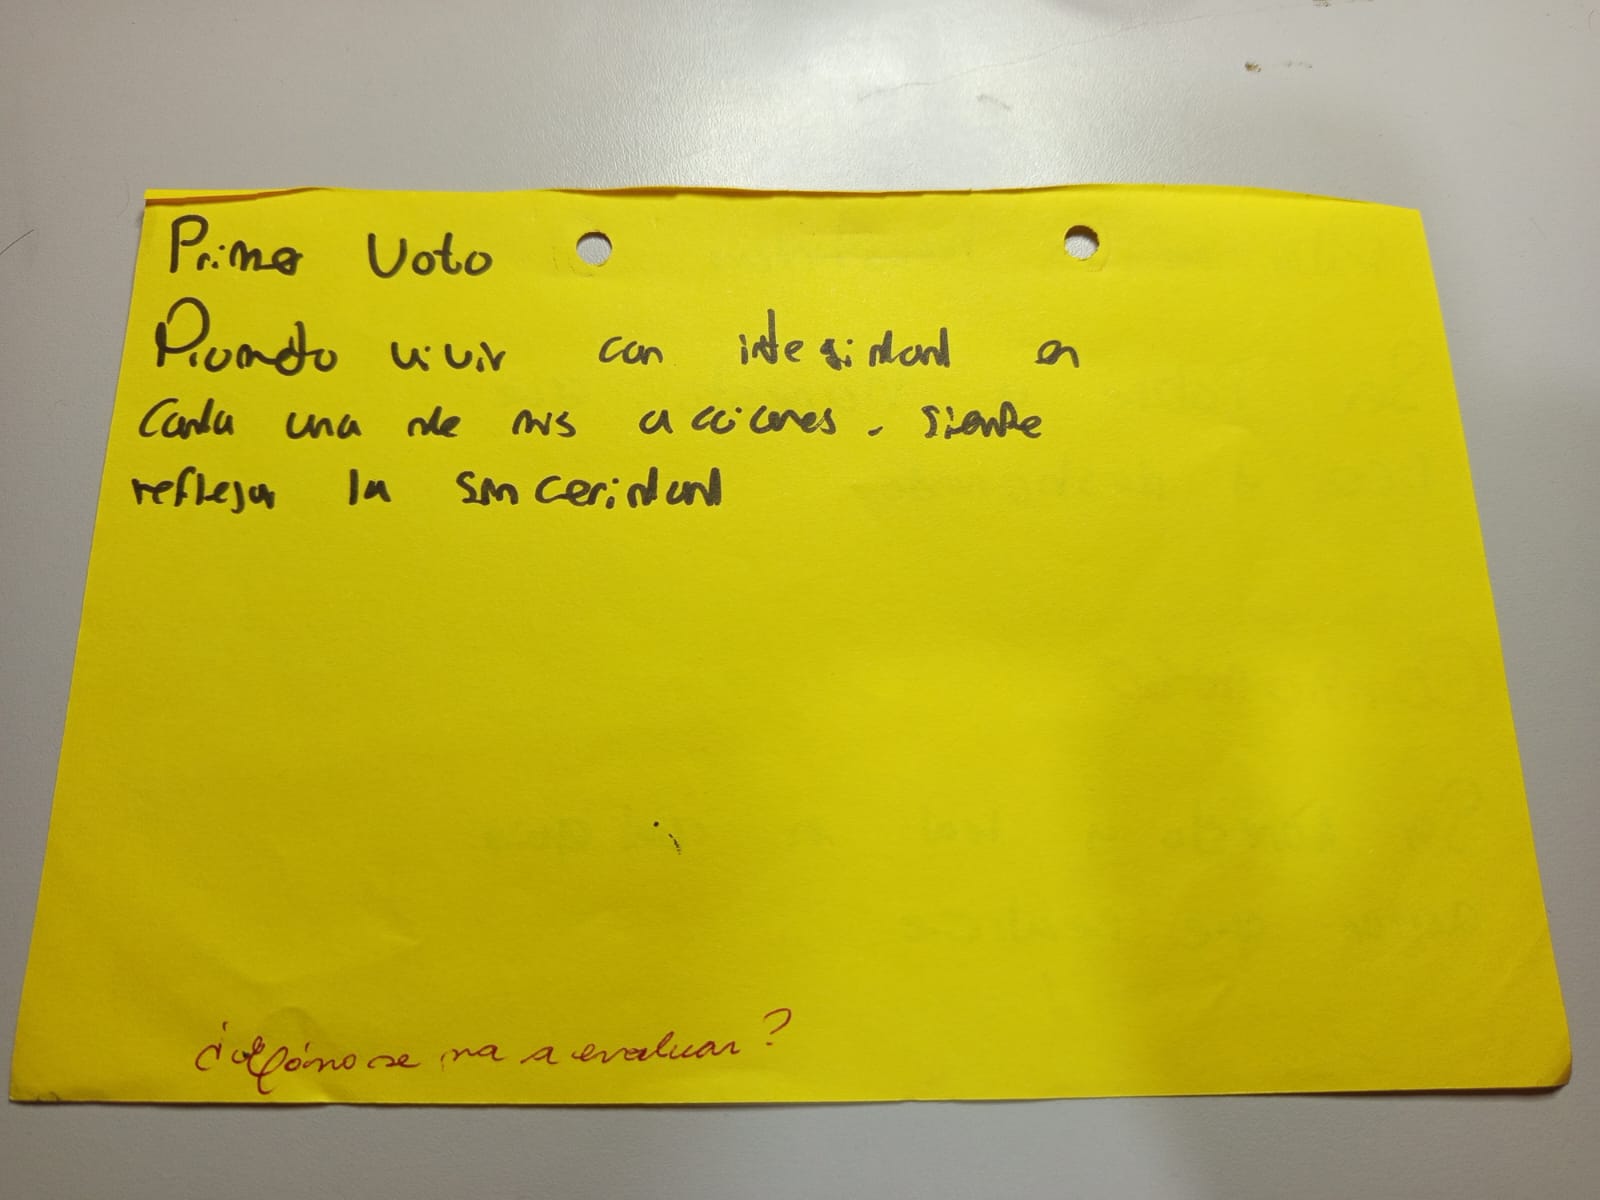 Primer Voto
Prometo vivir con integridad en
Cada una de mis acciones. Siempre
reflejar la sinceridad
¿Cómo se va a evaluar?